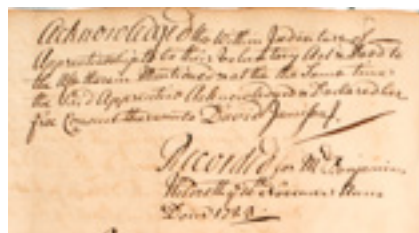 Acknowledged the Within Indenture of
Apprenticeship to be their Voluntary Act & Deed to
the Use therein Mentioned at the Same time
the said Apprentice Acknowledged & Declared her
free Consent thereunto David Jenifer.
Recorded for Mr Benjamin
November Anno
Dom 1743